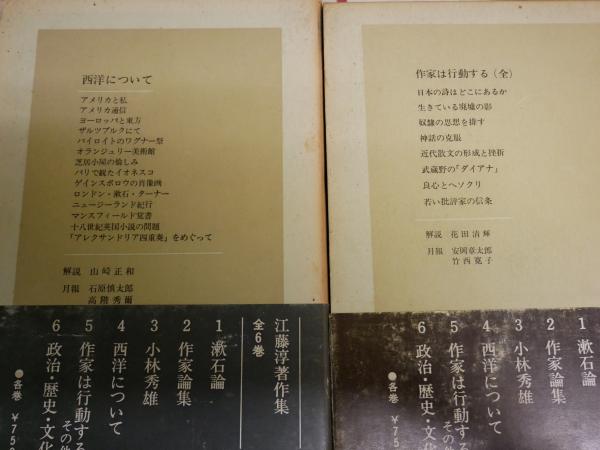 西洋について
アメリカと私
アメリカ通信
ヨーロッパと東方
ザルツブルクにて
バイロイトのワグナー祭
オランジュリー美術館
芝居小屋の愉しみ
パリで観たイオネスコ
ゲインスボロウの肖像画
ロンドン・漱石・ターナー
ニュージーランド紀行
マンスフィールド覚書
十八世紀英国小説の問題
「アレクサンドリア四重奏」をめぐって
解説 山崎正和
月報 石原慎太郎
高階秀爾
江藤淳著作集
全6巻
1 漱石論
2 作家論集
3 小林秀雄
4 西洋について
5 作家は行動する
その他
6 政治・歴史・文化
●各巻 ¥75
作家は行動する(全)
日本の詩はどこにあるか
生きている廃墟の影
奴隷の思想を排す
神話の克服
近代散文の形成と挫折
武蔵野の「ダイアナ」
良心とヘソクリ
若い批評家の信条
解説 花田清輝
月報 安岡章太郎
竹西寛子
1 漱石論
2 作家論集
3 小林秀雄
4 西洋について
5 作家は行動する
その他
6 政治・歴史・文化
●各巻 ¥75